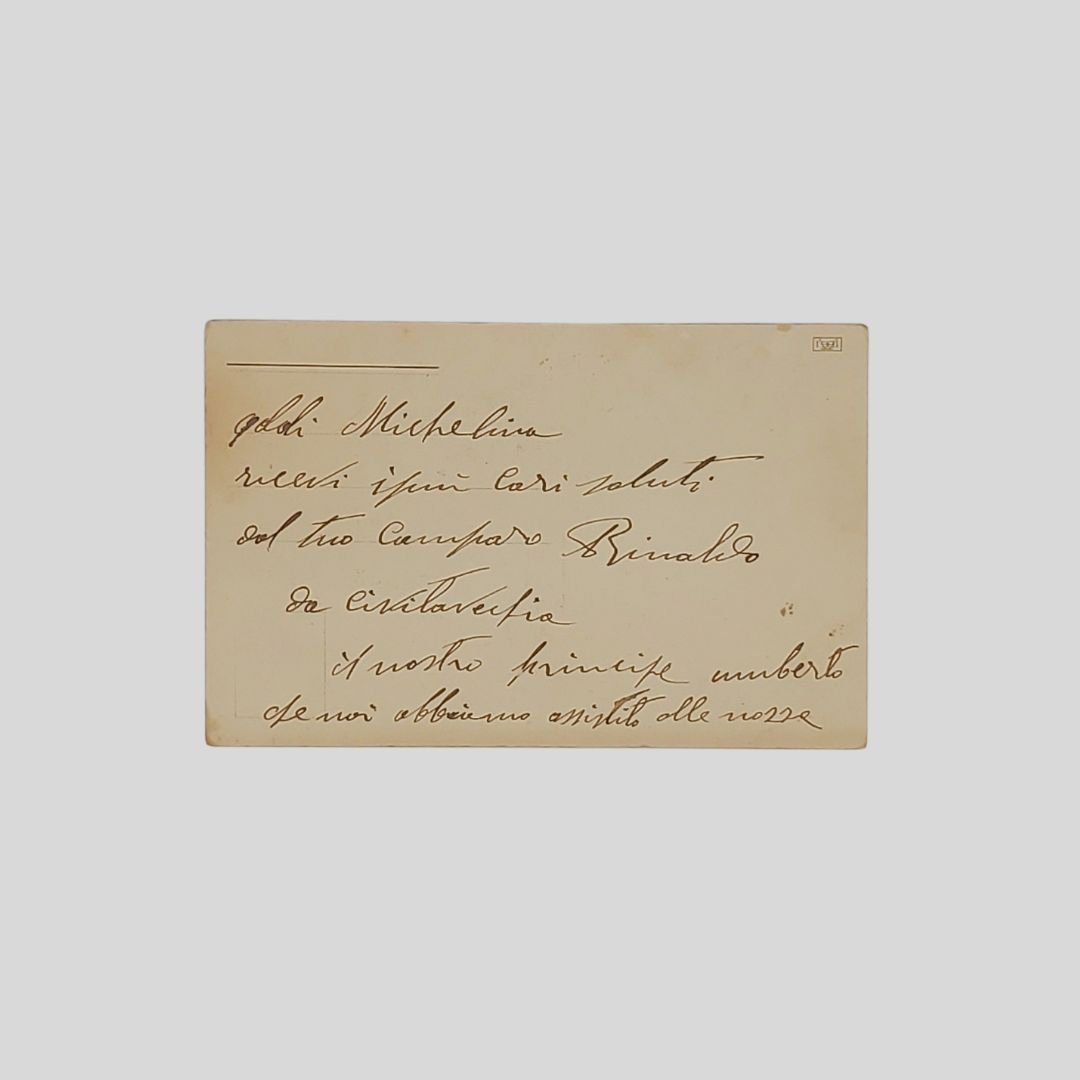 Michelina
ricevi i più cari saluti
dal tuo comparo Rinaldo
da civitavechia
il nostro principe umberto
che noi abbiamo assistito alle nozze